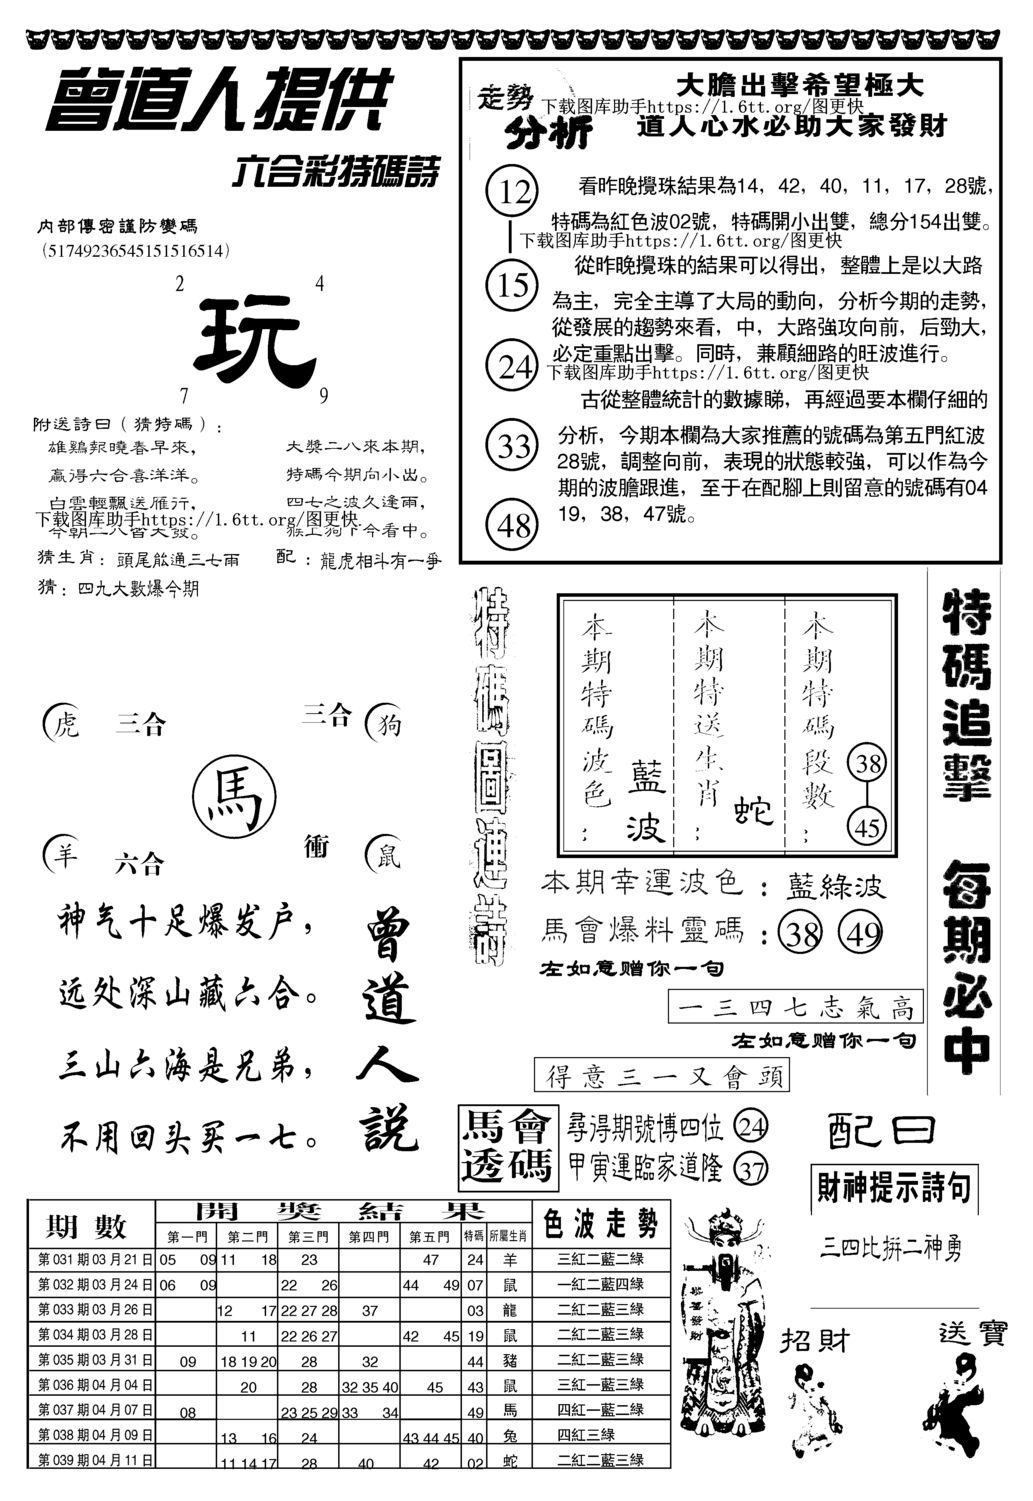 曾道人提供
六合彩特碼詩
内部傳密謹防變碼
（51749236545151516514）
2 4
玩
7 9
附送詩曰（猜特碼）:
雄鷄報曉春早來， 大獎二八來本期，
贏得六合喜洋洋。 特碼今期向小出。
白雲輕飄送雁行， 四七之波久逢雨，
下载图库助手https://1.6tt.org/图更快
猜生肖: 頭尾能通三七兩 配: 龍虎相斗有一爭
猜: 四九大數爆今期
走勢
分析
大膽出擊希望極大
下载图库助手https://1.6tt.org/图更快
道人心水必助大家發財
12
15
24
33
48
看昨晚攪珠結果為14，42，40，11，17，28號，
特碼為紅色波02號，特碼開小出雙，總分154出雙。
下载图库助手https://1.6tt.org/图更快
從昨晚攪珠的結果可以得出，整體上是以大路
為主，完全主導了大局的動向，分析今期的走勢，
從發展的趨勢來看，中，大路強攻向前，后勁大，
必定重點出擊。同時，兼顧細路的旺波進行。
下载图库助手https://1.6tt.org/图更快
古從整體統計的數據睇，再經過要本欄仔細的
分析，今期本欄為大家推薦的號碼為第五門紅波
28號，調整向前，表現的狀態較強，可以作為今
期的波膽跟進，至于在配腳上則留意的號碼有04
19，38，47號。
虎 三合 三合 狗
馬
羊 六合 衝 鼠
神气十足爆发户，
远处深山藏六合。
三山六海是兄弟，
不用回头买一七。
曾道人説
特碼圖連詩
本期特碼波色: 藍波
本期特送生肖: 蛇
本期特碼段數: 38 45
本期幸運波色: 藍綠波
馬會爆料靈碼: 38 49
左如意赠你一句
一三四七志氣高
左如意赠你一句
得意三一又會頭
特碼追擊 每期必中
馬會透碼
尋得期號博四位 24
甲寅運臨家道隆 37
配曰
財神提示詩句
三四比拚二神勇
招財
送寶
恭喜發財
期數 開獎結果 色波走勢
第一門 第二門 第三門 第四門 第五門 特碼 所屬生肖
第031期03月21日 05 09 11 18 23 47 24 羊 三紅二藍二綠
第032期03月24日 06 09 22 26 44 49 07 鼠 一紅二藍四綠
第033期03月26日 12 17 22 27 28 37 03 龍 二紅二藍三綠
第034期03月28日 11 22 26 27 42 45 19 鼠 二紅二藍三綠
第035期03月31日 09 18 19 20 28 32 44 豬 二紅二藍三綠
第036期04月04日 20 28 32 35 40 45 43 鼠 三紅一藍三綠
第037期04月07日 08 23 25 29 33 34 49 馬 四紅一藍二綠
第038期04月09日 13 16 24 43 44 45 40 兔 四紅三綠
第039期04月11日 11 14 17 28 40 42 02 蛇 二紅二藍三綠